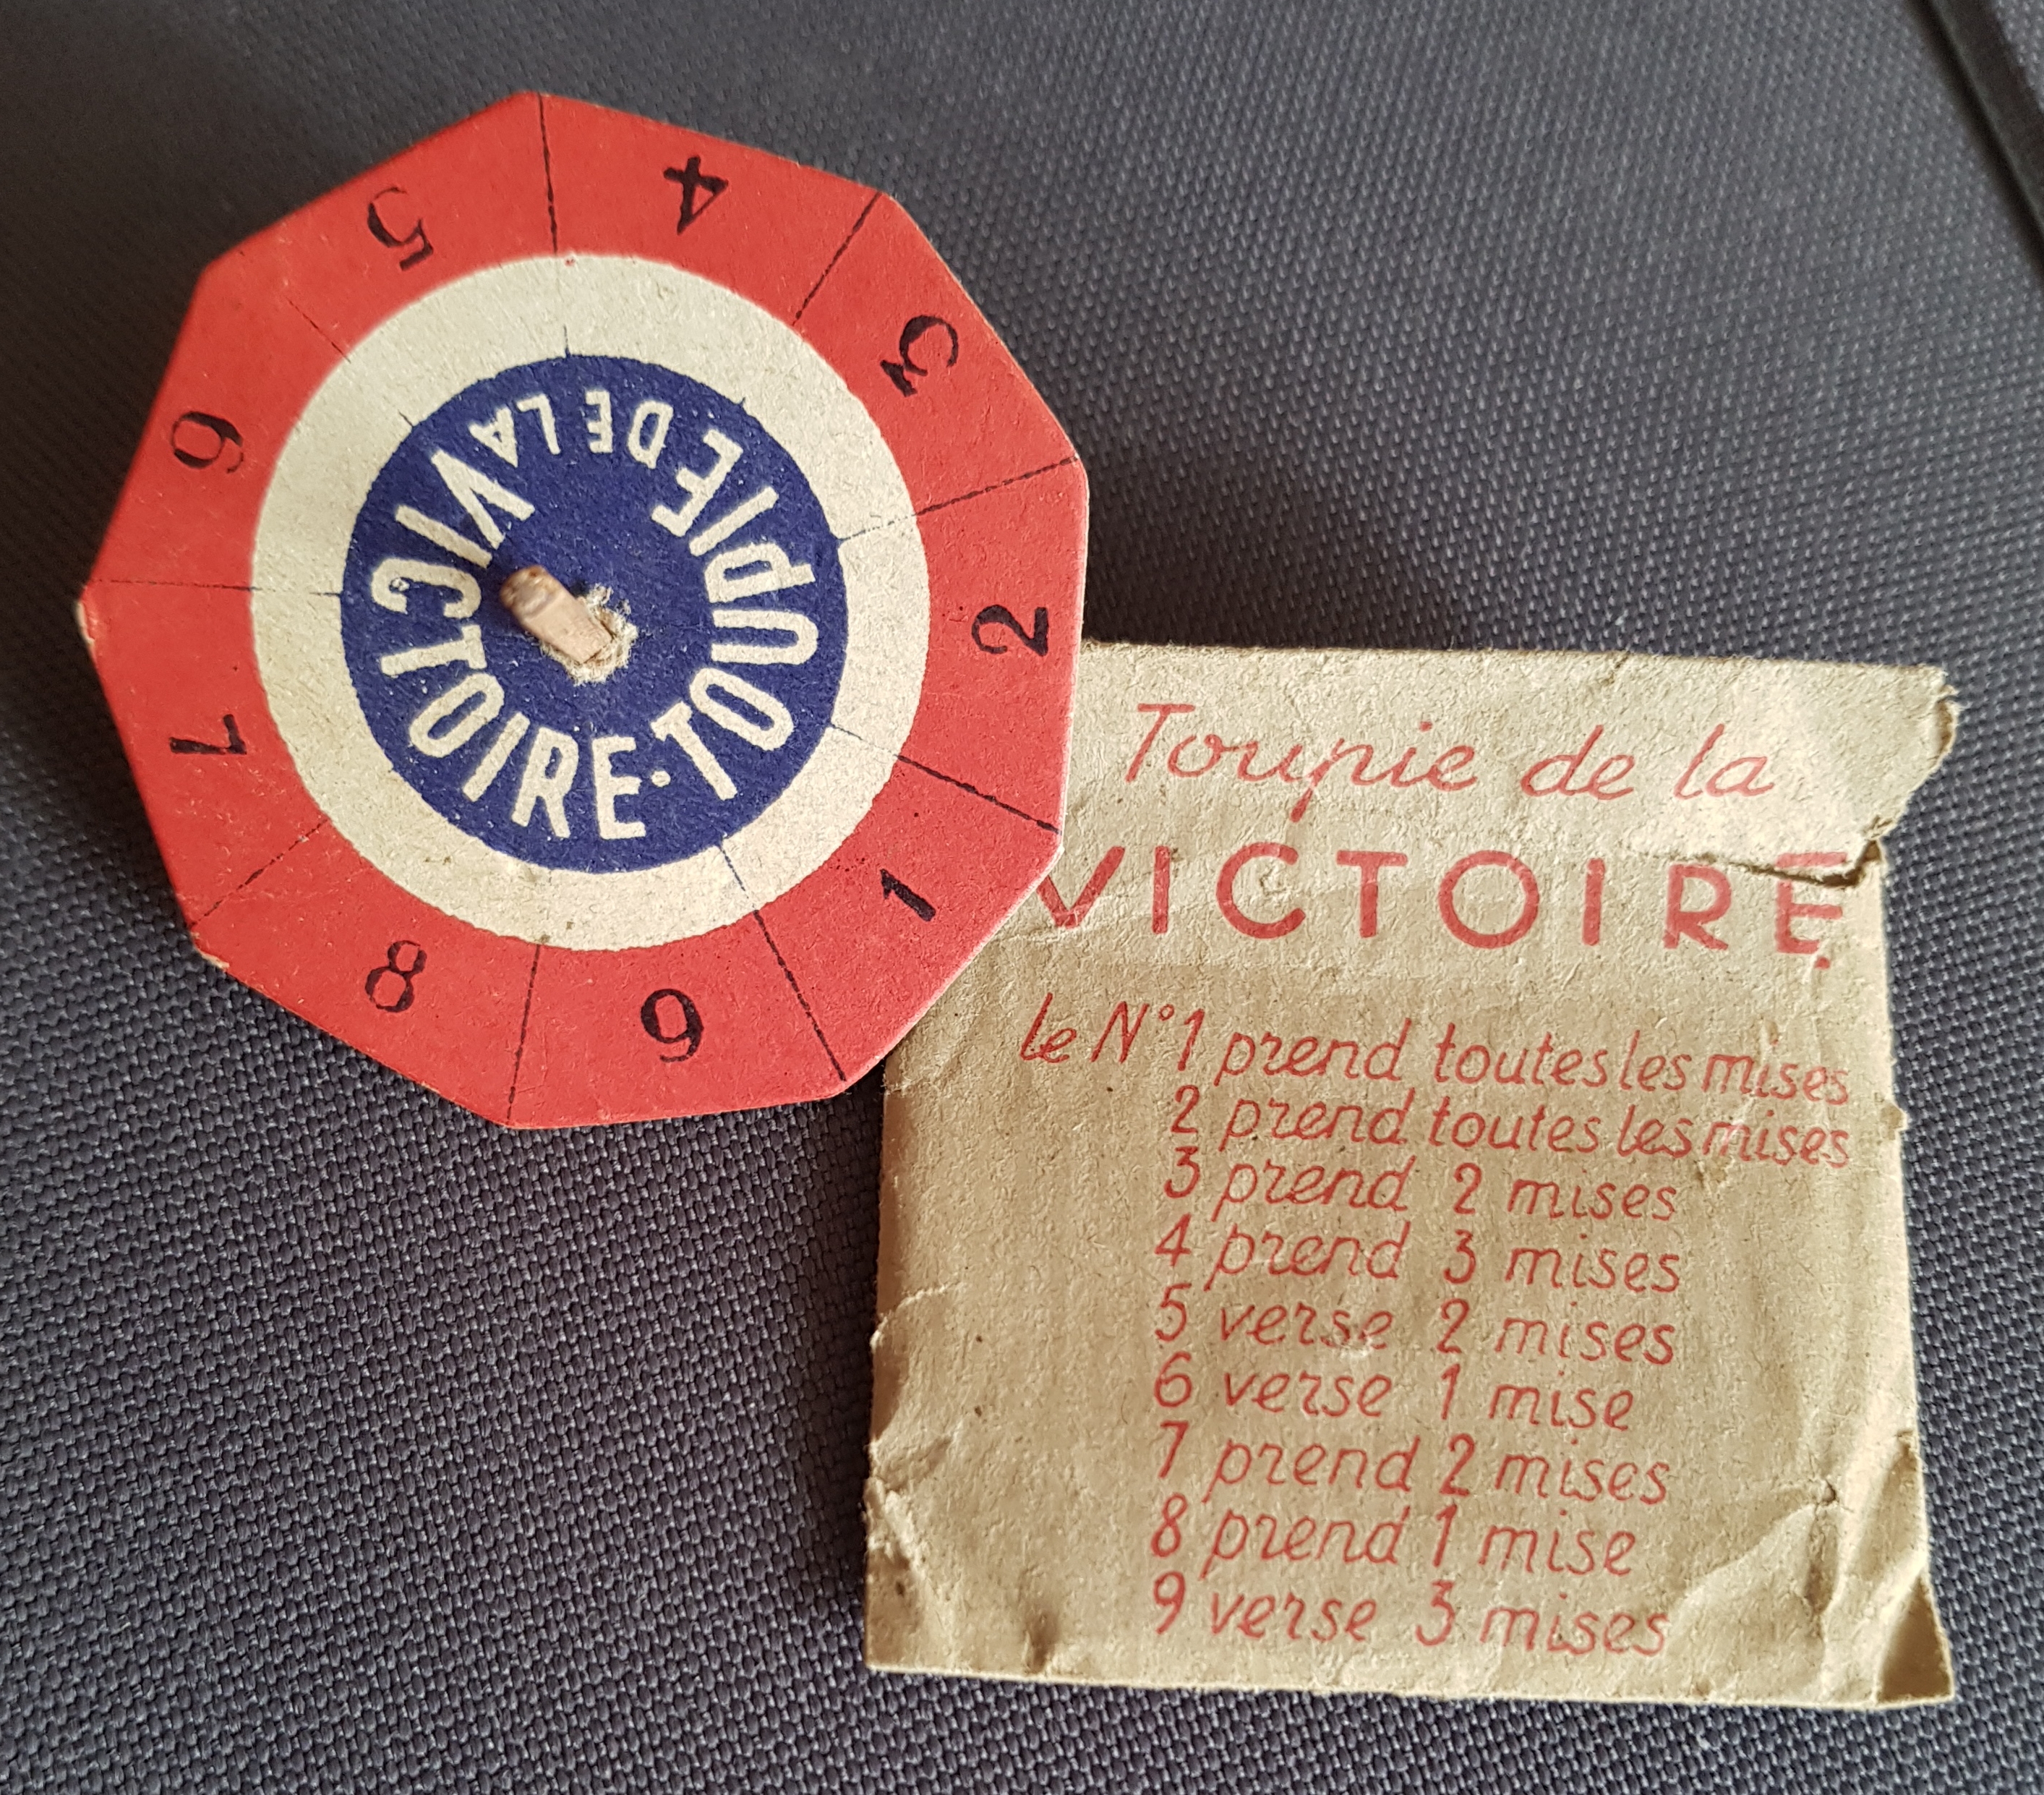 TOUPIE DE LA VICTOIRE·
1
2
3
4
5
6
7
8
9
Toupie de la
VICTOIRE
le N°1 prend toutes les mises
2 prend toutes les mises
3 prend 2 mises
4 prend 3 mises
5 verse 2 mises
6 verse 1 mise
7 prend 2 mises
8 prend 1 mise
9 verse 3 mises